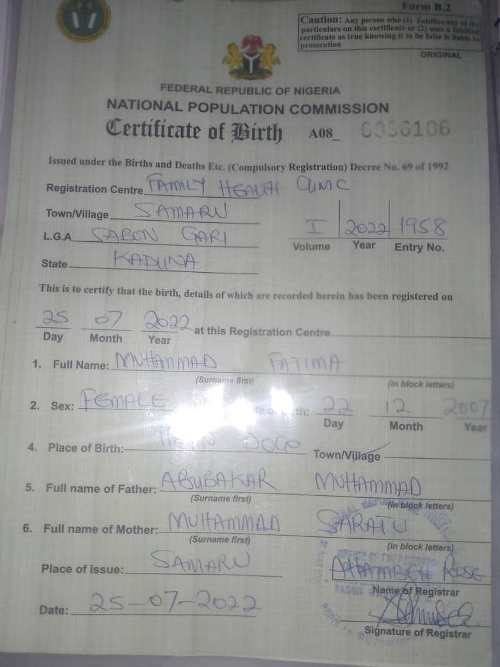 Form B.2
Caution: Any person who (1) falsifies any of the
particulars on this certificate or (2) uses a falsified
certificate as true knowing it to be false is liable to
prosecution
ORIGINAL
FEDERAL REPUBLIC OF NIGERIA
NATIONAL POPULATION COMMISSION
Certificate of Birth A08_
Issued under the Births and Deaths Etc. (Compulsory Registration) Decree No. 69 of 1992
Registration Centre FAMILY HEALTH CLINIC
Town/Village SAMARU
I 2022 1958
L.G.A SABON GARI
Volume Year Entry No.
State KADUNA
This is to certify that the birth, details of which are recorded herein has been registered on
25 07 2022 at this Registration Centre
Day Month Year
1. Full Name: MUHAMMAD FATIMA
(Surname first) (in block letters)
2. Sex: FEMALE 22 12 2007
Day Month Year
4. Place of Birth: Town/Village
5. Full name of Father: ABUBAKAR MUHAMMAD
(Surname first) (in block letters)
6. Full name of Mother: MUHAMMAD SARATU
(Surname first) (in block letters)
Place of issue: SAMARU
Name of Registrar
Date: 25-07-2022
Signature of Registrar